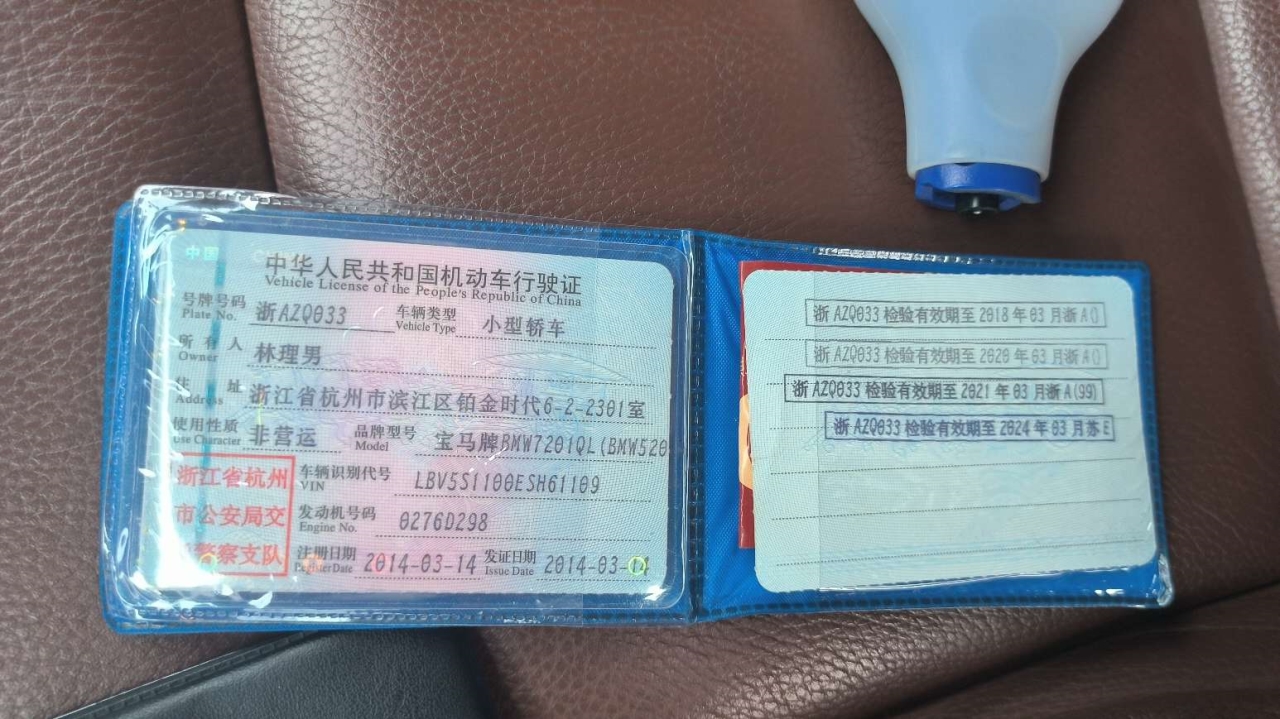 中国
中华人民共和国机动车行驶证
Vehicle License of the People's Republic of China
号牌号码 浙AZQ033 车辆类型 小型轿车
Plate No. Vehicle Type
所有人 林理男
Owner
住址 浙江省杭州市滨江区铂金时代6-2-2301室
Address
使用性质 非营运 品牌型号 宝马牌BMW7201QL(BMW520
Use Character Model
浙江省杭州
市公安局交
警察支队
车辆识别代号 LBV5S1100ESH61109
VIN
发动机号码 0276D298
Engine No.
注册日期 2014-03-14 发证日期 2014-03-14
Register Date Issue Date
浙AZQ033检验有效期至2018年03月浙A()
浙AZQ033检验有效期至2020年03月浙A()
浙AZQ033检验有效期至2021年03月浙A(99)
浙AZQ033检验有效期至2024年03月苏E